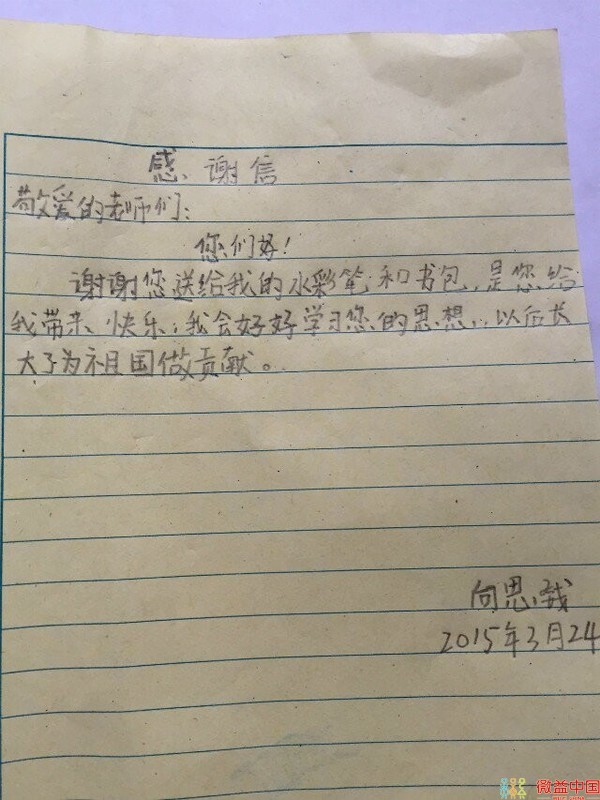 感谢信
敬爱的老师们：
您们好！
谢谢您送给我的水彩笔和书包，是您给
我带来快乐，我会好好学习您的思想，以后长
大了为祖国做贡献。
向思
2015年3月24
微益中国